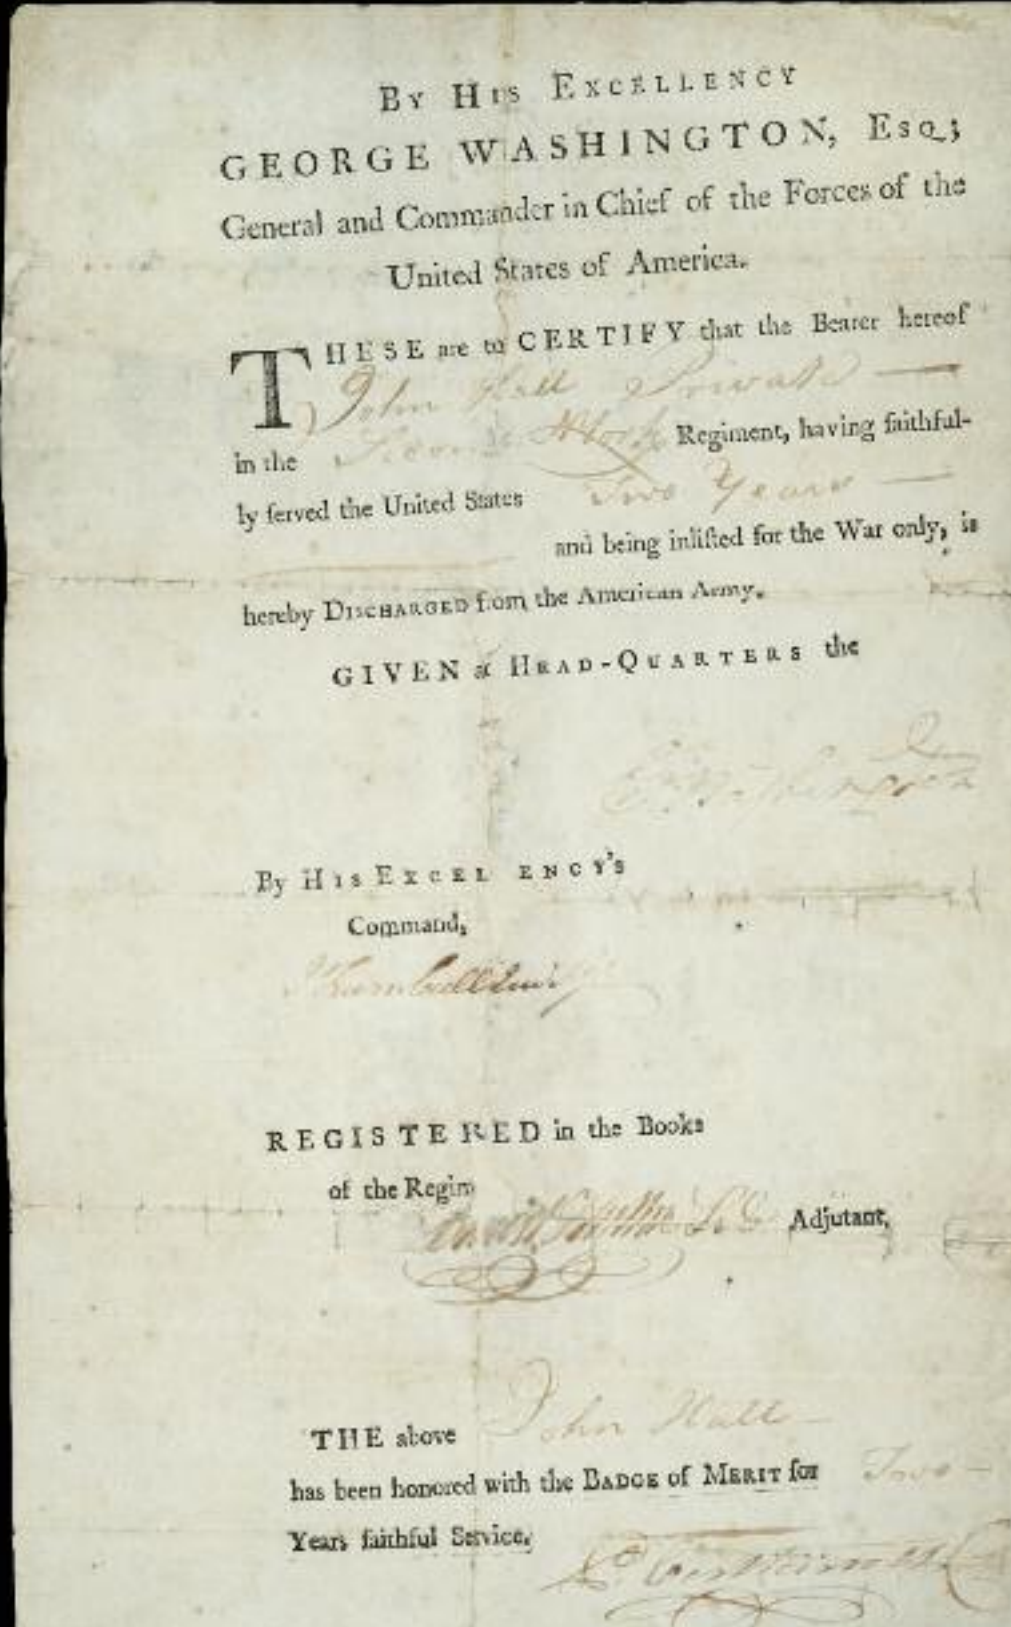 By His Excellency
GEORGE WASHINGTON, Esq;
General and Commander in Chief of the Forces of the
United States of America.
THESE are to CERTIFY that the Bearer hereof
John Hall Private
in the Regiment, having faithful-
ly ſerved the United States Two Years
and being inliſted for the War only, is
hereby Discharged from the American Army.
GIVEN at Head-Quarters the
By His Excel ency's
Command,
REGISTERED in the Books
of the Regim
Adjutant,
THE above John Hall
has been honored with the Badge of Merit for Two
Years faithful Service.